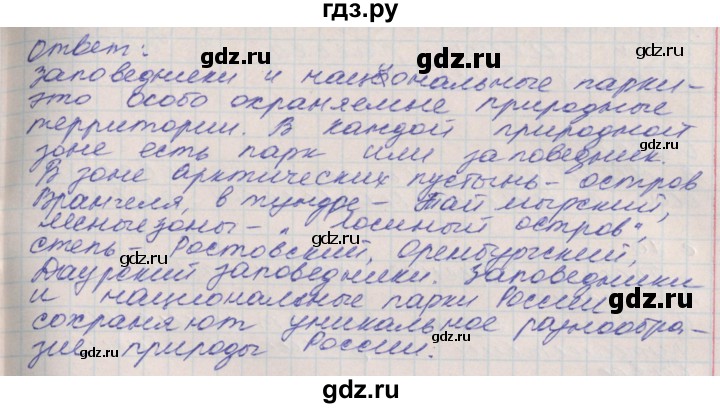 гдз.ру
ответ:
заповедники и национальные парки-
это особо охраняемые природные
территории. В каждой природной
зоне есть парк или заповедник.
В зоне арктических пустынь- остров
Врангеля, в тундре- Таймырский,
лесные зоны- „Лосиный остров",
степь- Ростовский, Оренбургский,
Даурский заповедники. Заповедники
и национальные парки России
сохраняют уникальное разнообра-
зие природы России.
gdz.ru
gdz.ru
gdz.ru
gdz.ru
gdz.ru
gdz.ru
gdz.ru
gdz.ru
gdz.ru
gdz.ru
gdz.ru